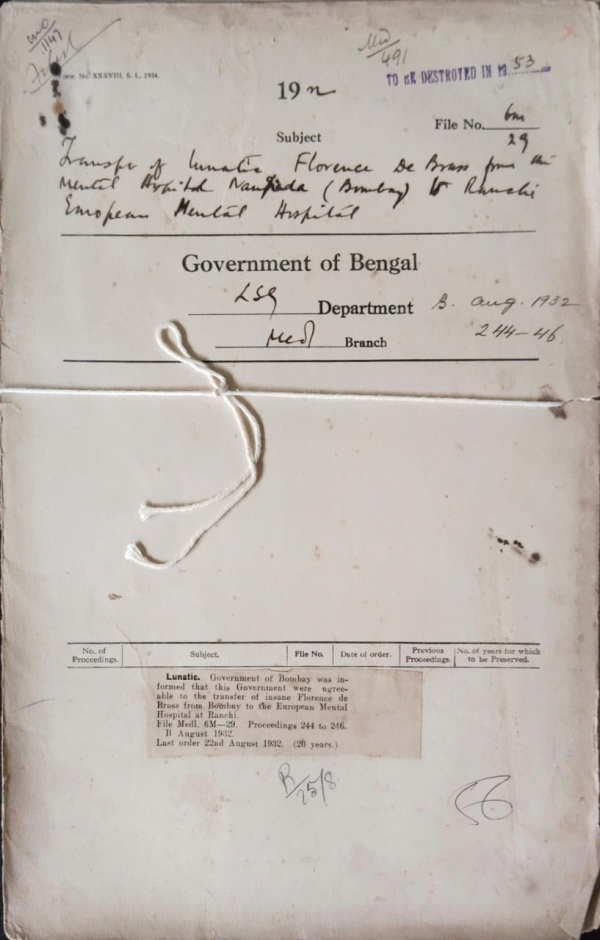 1147
Med
491
Form No. XXXVIII, S. I., 1924.
TO BE DESTROYED IN 1953
19
File No. 6m
29
Subject
Transfer of lunatic Florence De Brass from the
Mental Hospital Naupada (Bombay) to Ranchi
European Mental Hospital
Government of Bengal
LSG Department B. Aug. 1932
Med Branch 244-46.
No. of Proceedings. Subject. File No. Date of order. Previous Proceedings. No. of years for which to be Preserved.
Lunatic. Government of Bombay was in-
formed that this Government were agree-
able to the transfer of insane Florence de
Brass from Bombay to the European Mental
Hospital at Ranchi.
File Medl. 6M—29. Proceedings 244 to 246.
B August 1932.
Last order 22nd August 1932. (20 years.)
25/8